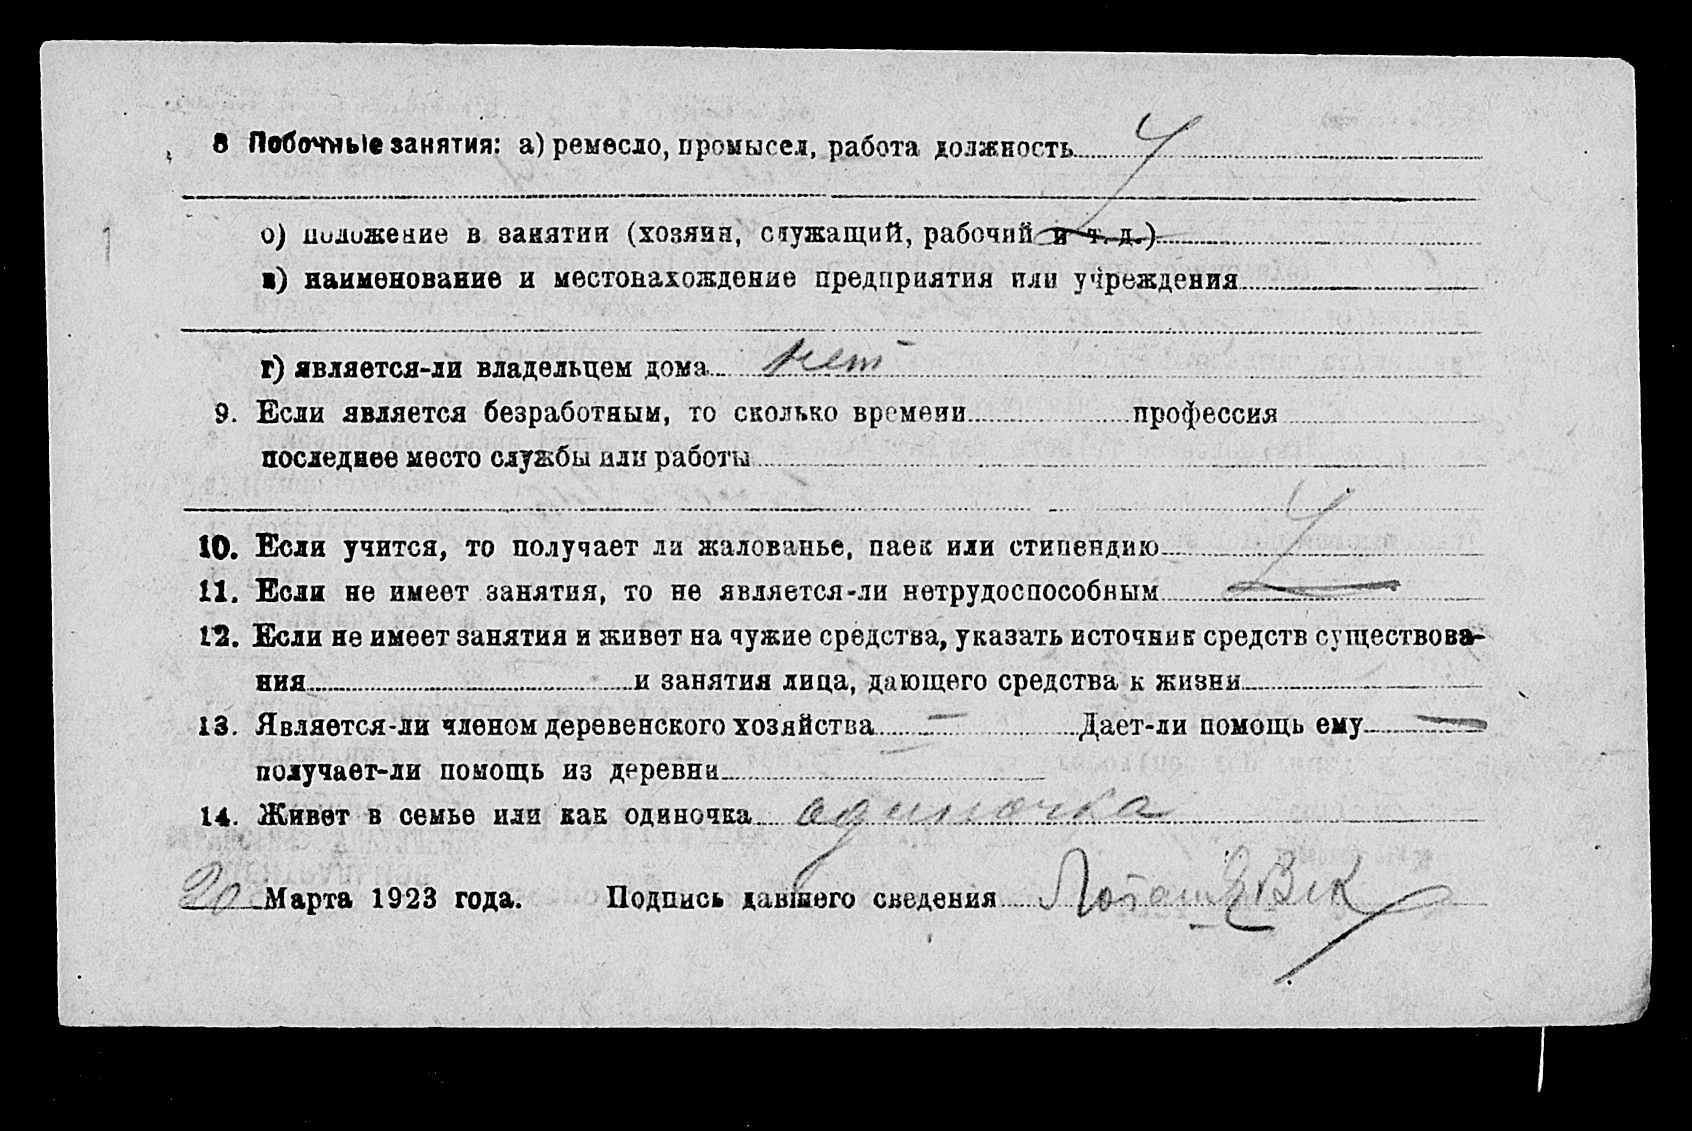 8 Побочные занятия: а) ремесло, промысел, работа должность
б) положение в занятии (хозяин, служащий, рабочий и т. д.)
в) наименование и местонахождение предприятия или учреждения
г) является-ли владельцем дома нет
9. Если является безработным, то сколько времени профессия
последнее место службы или работы
10. Если учится, то получает ли жалованье, паек или стипендию
11. Если не имеет занятия, то не является-ли нетрудоспособным
12. Если не имеет занятия и живет на чужие средства, указать источник средств существова-
ния и занятия лица, дающего средства к жизни
13. Является-ли членом деревенского хозяйства — Дает-ли помощь ему —
получает-ли помощь из деревни
14. Живет в семье или как одиночка одиночка
20 Марта 1923 года. Подпись давшего сведения